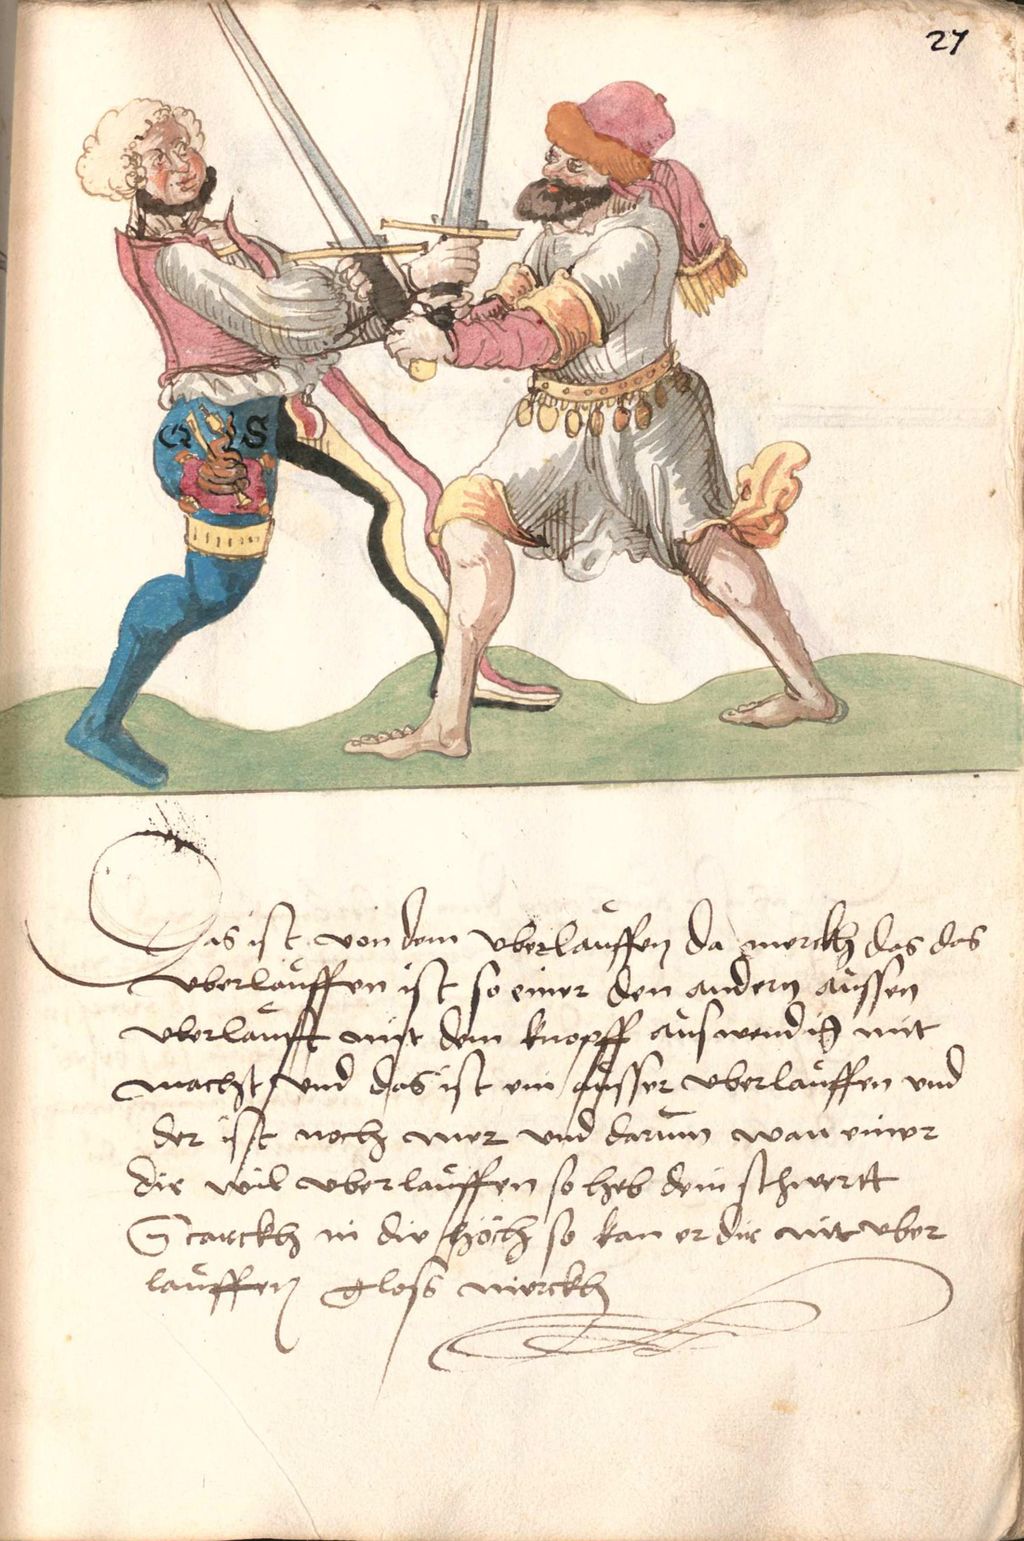 27
E S
Das ist von dem vberlauffen da merckh das das
vberlauffen ist so einer den andern aussen
vberlaufft mit dem knopff auswendig mit
macht vnd das ist ein ausser vberlauffen vnd
der ist noch mer vnd darum wan einer
die wil vberlauffen so heb dein schwertt
starckh in die höch so kan er dir nit vber
lauffen gloss merckh